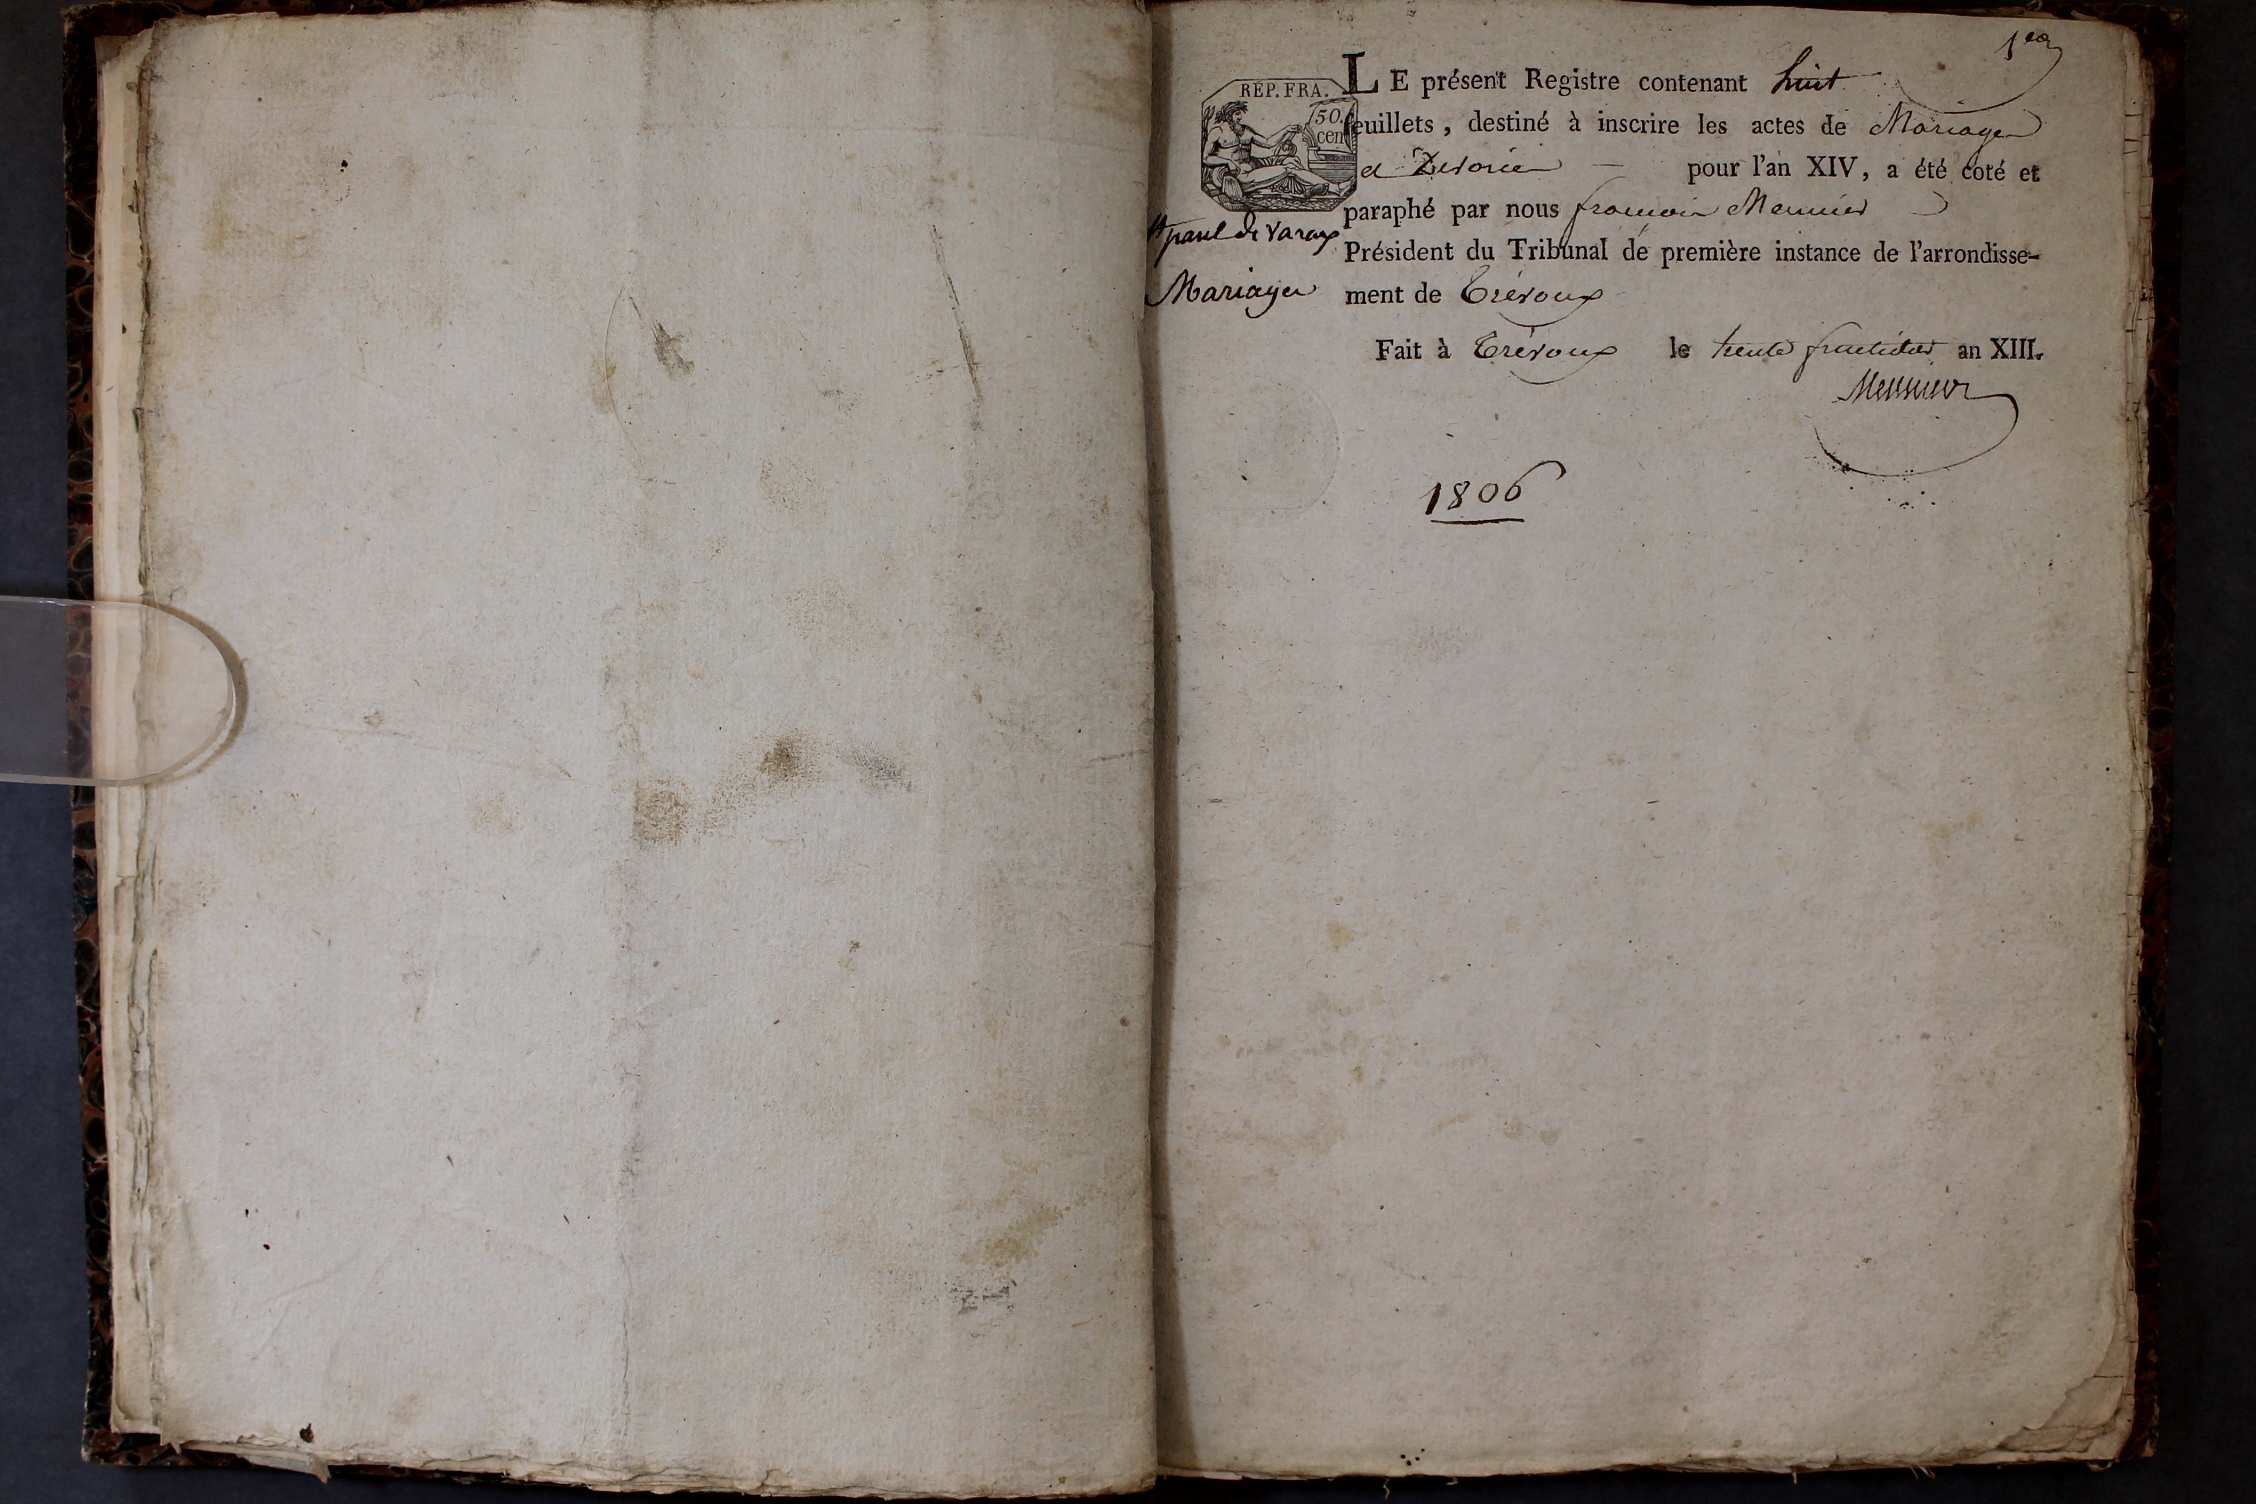 1er
RÉP. FRA.
50.
cen
LE présent Registre contenant huit
feuillets, destiné à inscrire les actes de Mariages
et Divorces — pour l'an XIV, a été coté et
paraphé par nous françois Meunier
St paul de Varax
Président du Tribunal de première instance de l'arrondisse-
Mariages
ment de Trévoux
Fait à Trévoux le trente fructidor an XIII.
Meunier
1806